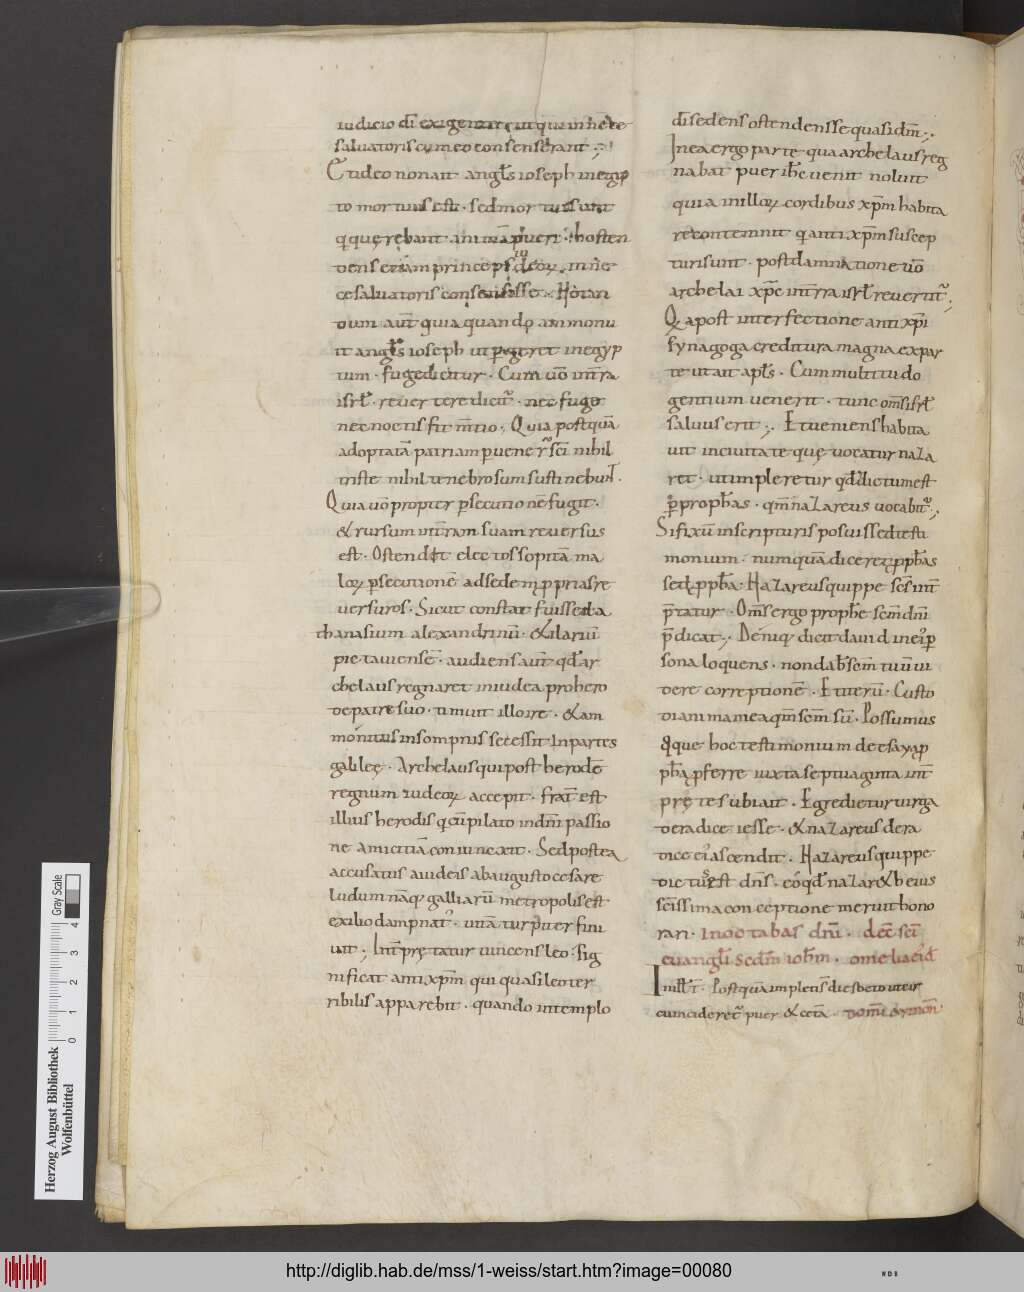 iudicio dī exigente ut qui in nece
saluatoris cum eo consenserant ;
Et ideo non ait angl̄s ioseph in egyp
to mortuus est · sed mortui sunt
qui querebant animā pueri · hosten
dens etiam principes iudeoꝝ in ne
ce saluatoris consensisse ·
dum aut̄ quia quando ammonu
it angl̄s ioseph ut pergeret in egyp
tum · fuge dicitur · Cum uō int̄ra
isrl̄ · reuertere dicit᷑ · nec fuge
nec noctis fit m̄tio · Quia postquā
ad optatā patriam puenerī sc̄i nihil
triste nihil tenebrosum sustinebunt̄ .
Quia uō propter p̱secutionē fugit ·
& rursum int̄ram suam reuersus
est · Ostendit electos sopitā ma
loꝝ p̱secutionē ad sedem ꝓprias re
uersuros · Sicut constat fuisse &a
thanasium alexandrinū · & ilariū
pictauiensē · audiens aut̄ qd̄ ar
chelaus regnaret in iudea pro hero
de patre suo · timuit illo ire · & am
monitus in sompnis secessit In partes
galileę · Archelaus qui post herodē
regnum iudeoꝝ accepit · frat̄ est
illius herodis q cū pilato in dn̄i passio
ne amicitiā coniunexit · Sed postea
accusatus a iudeis ab augusto cesare
ludum nāq galliarū metropolis est
exilio dampnat᷑ · uitā turpiter fini
uit ; Int̄pretatur uincens leo · sig
nificat anti xp̄m qui quasi leo ter
ribilis apparebit · quando in templo
dī sedens ostendens se quasi dm̄ ;.
In ea ergo parte qua archelaus reg
nabat puer ih̄c uenit noluit
quia in illoꝝ cordibus xp̄m habita
re contemnit q anti xp̄m suscep
turi sunt · post damnatione uō
archelai xp̄c int̄ra isrl̄ reuertit᷑ ;
Qa post interfectione anti xp̄i
synagoga creditura magna ex par
te ut ait apl̄s · Cum multitudo
gentium uenerit · tunc om̄s isrl̄
saluus erit ;. Et ueniens habita
uit in ciuitate quę uocatur naza
ret · ut impleretur qd̄ dictum est
p̱ prophās · qm̄ nazareus uocabit᷑ ;.
Si fixū in scripturis posuisse di testi
monium · numquā diceret p̱ ꝓphās
sed p̱ ꝓphā · Nazareus quippe sc̄s int̄
p̄tatur · Om̄s ergo prophē scm̄ dn̄m
p̄dicat ;. Deniq dicit dauid in ei᷑ p̱
sona loquens · non dab̄ scm̄ tuū ui
dere correptionē · Et iterū · Custo
di animam meā qm̄ scm̄ sū · Possumus
quoque hoc testimonium de esaya ꝓ
phā ꝓferre iuxta septuaginta int̄
prętes ubi ait · Egredietur uirga
de radice iesse · & nazareus de ra
dice ei᷑ ascendit · Nazareus quippe
dictus est dn̄s · eo qd̄ nazar& h eius
scissima conceptione meruit hono
rari · In octabas dn̄i · lec̄ sc̄i
euangl̄i scdm̄ ioh̄m · omelia eid̄
In ill̄ t̄ · Postquā impleti s̄ dies octo ut cir
cumcideret᷑ puer & cetā ·
Herzog August Bibliothek
Wolfenbüttel
Gray Scale
0 1 2 3 4
http://diglib.hab.de/mss/1-weiss/start.htm?image=00080